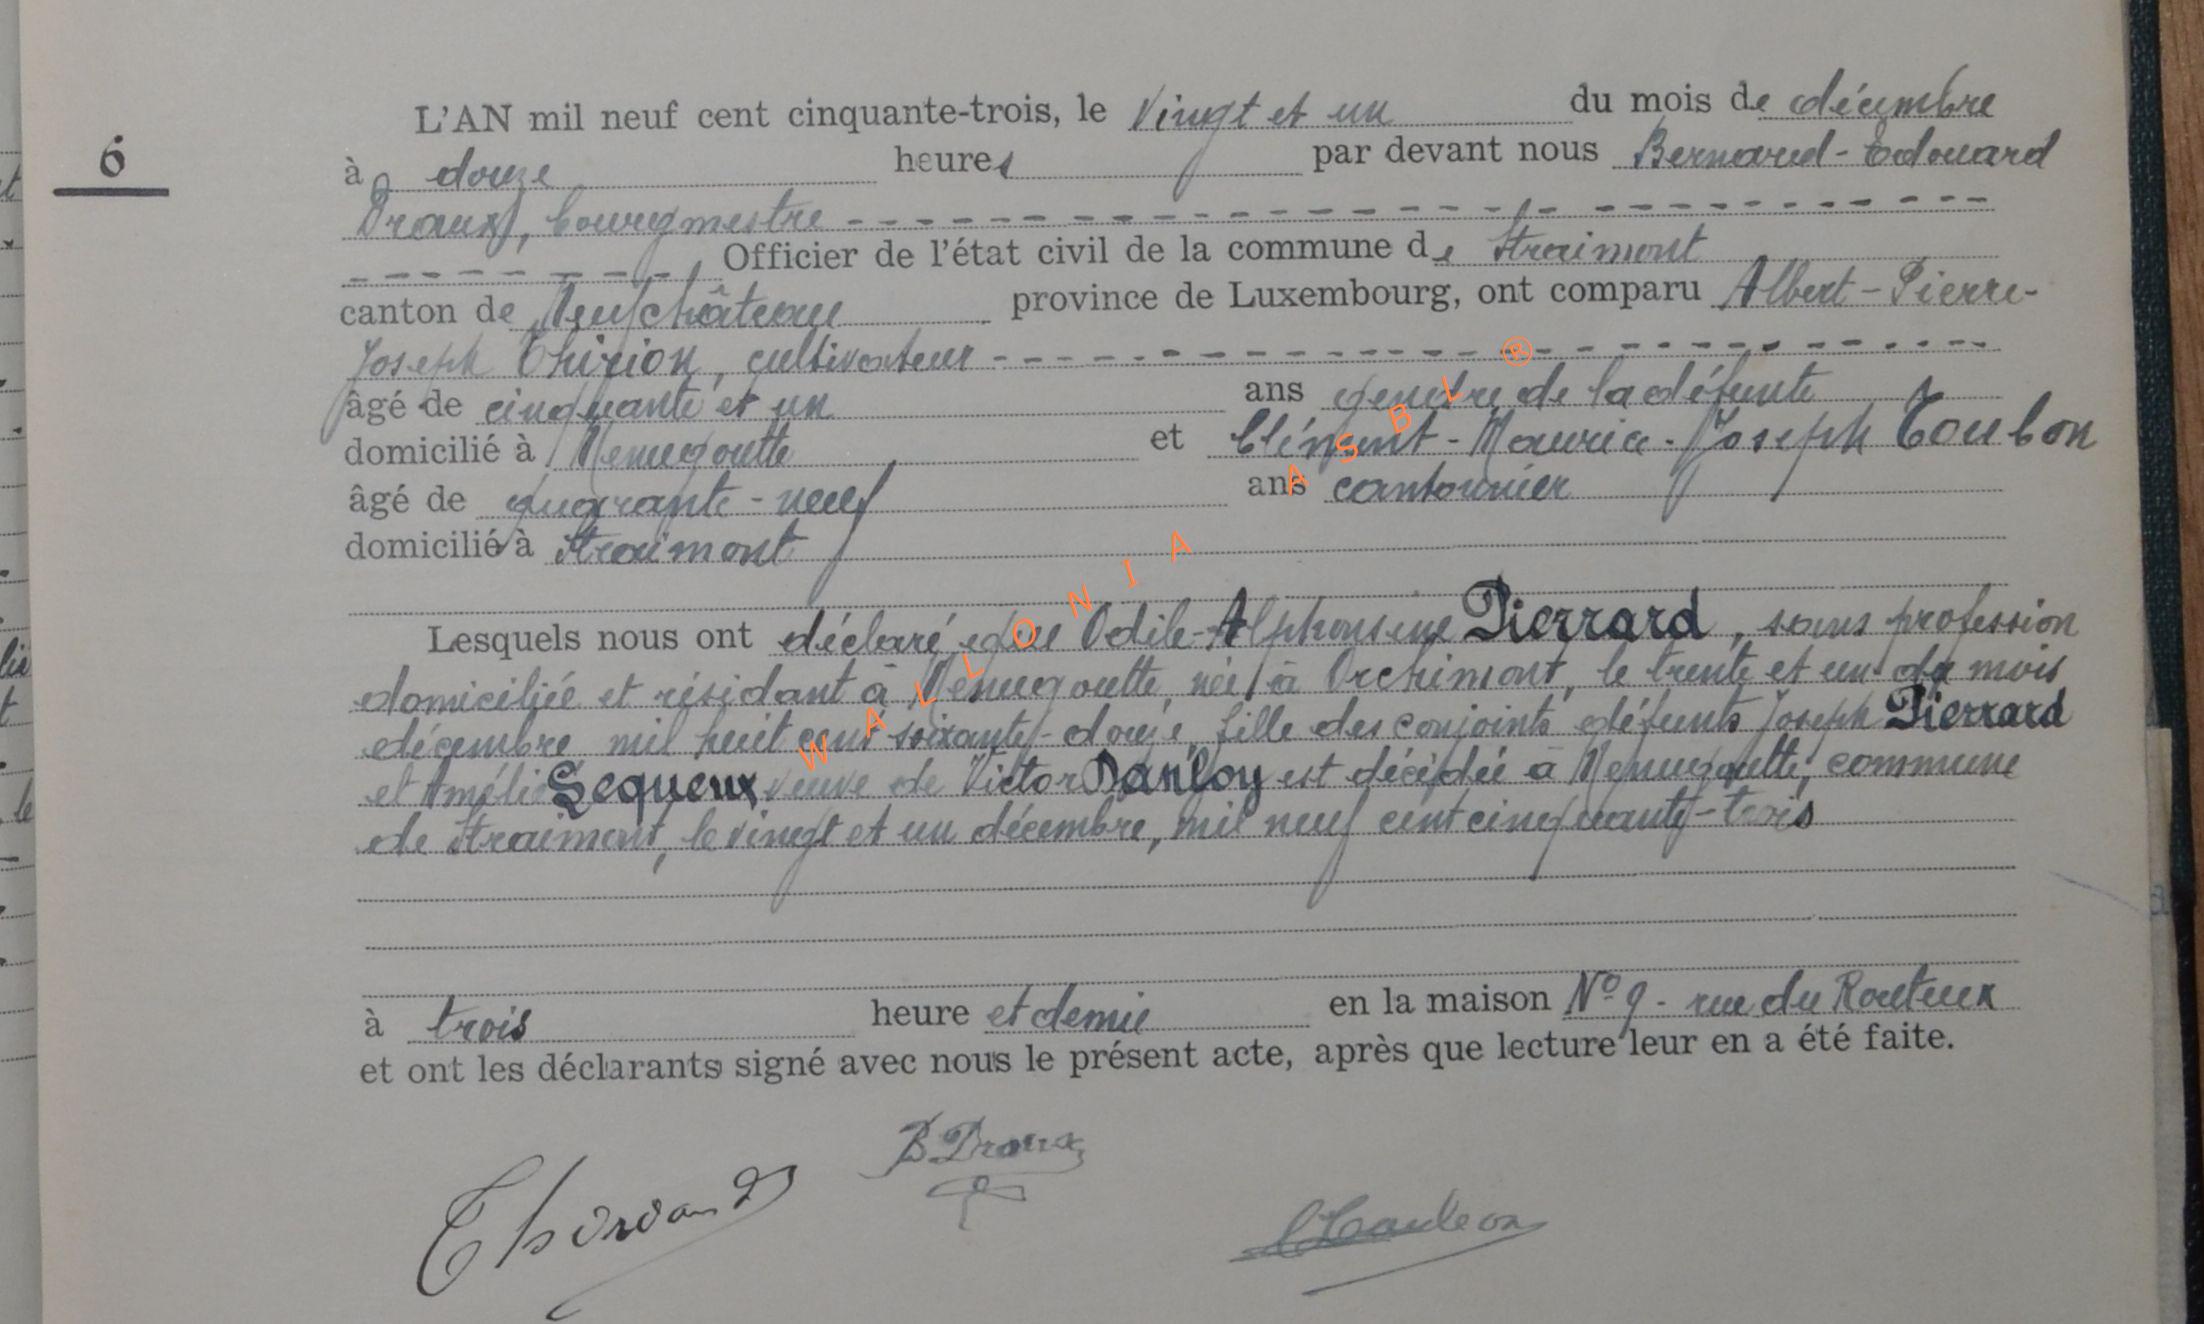 6
L'AN mil neuf cent cinquante-trois, le Vingt et un du mois de décembre
à douze heures par devant nous Bernard-Edouard
Draux, bourgmestre
Officier de l'état civil de la commune de Straimont
canton de Neufchâteau province de Luxembourg, ont comparu Albert-Pierre-
Joseph Thirion, cultivateur
âgé de cinquante et un ans gendre de la défunte
domicilié à Menugoutte et Clément-Maurice-Joseph Toubon
âgé de quarante-neuf ans cantonnier
domicilié à Straimont
Lesquels nous ont déclaré que Odile-Alphonsine Pierrard, sans profession
domiciliée et résidant à Menugoutte, née à Orchimont, le trente et un du mois
décembre mil huit cent soixante-douze, fille des conjoints défunts Joseph Pierrard
et Amélie Lequeux, veuve de Victor Danloy est décédée à Menugoutte, commune
de Straimont, le vingt et un décembre, mil neuf cent cinquante-trois
à trois heure et demie en la maison N° 9 - rue du Routeux
et ont les déclarants signé avec nous le présent acte, après que lecture leur en a été faite.
B Draux
WALLONIA ASBL ®